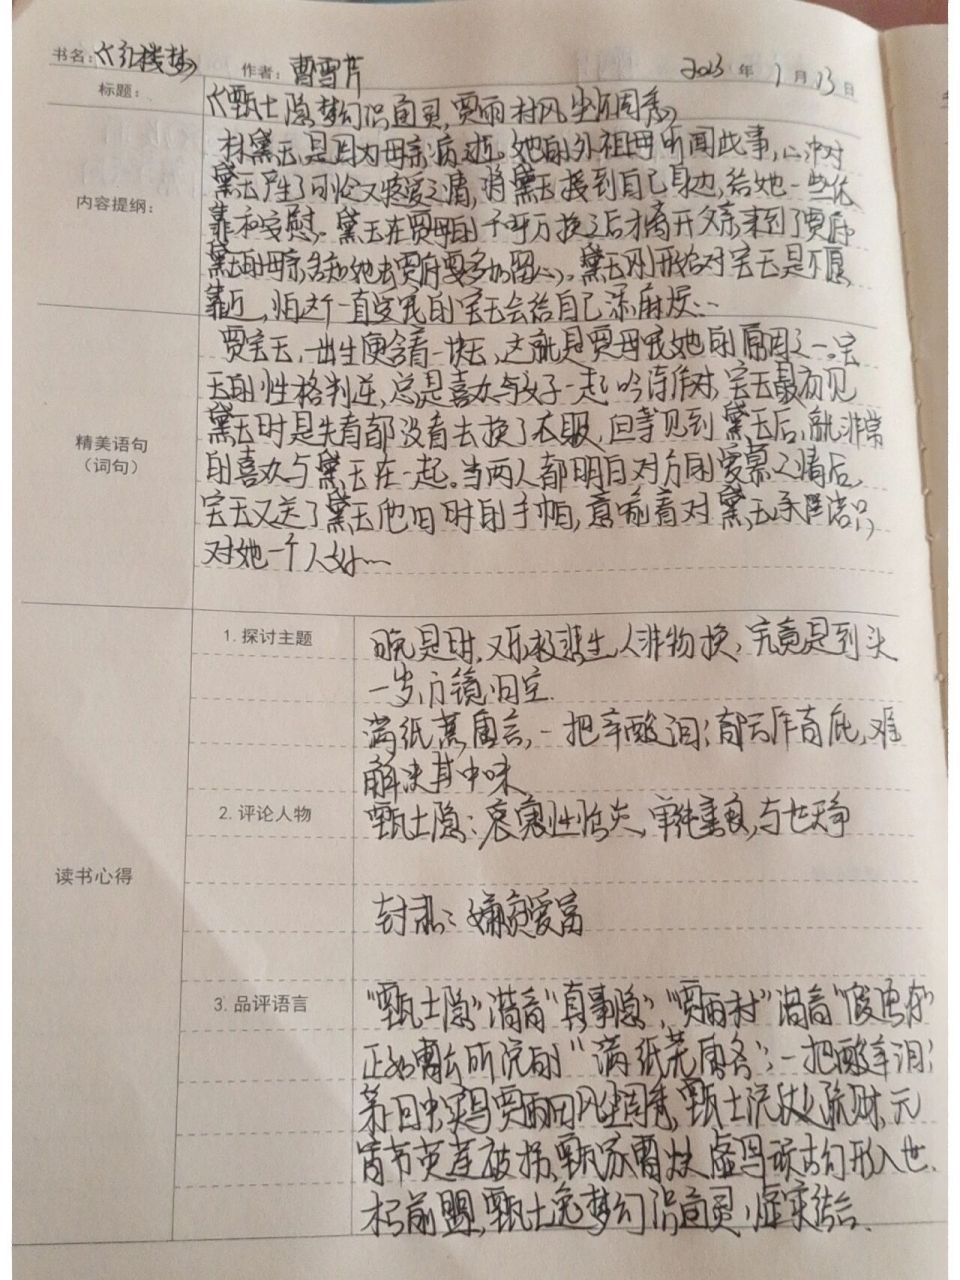 书名:《红楼梦》 作者:曹雪芹 2023年1月13日
标题:
《甄士隐梦幻识通灵,贾雨村风尘怀闺秀》
林黛玉,是因为母亲病逝,她的外祖母听闻此事,心中对
黛玉产生了可怜又疼爱之情,将黛玉接到自己身边,给她一些依
内容提纲:
靠和安慰。黛玉在贾母的千呼万换之后才离开父亲来到了贾府
黛玉的母亲告知她去贾府要多加留心,黛玉刚开始对宝玉是不愿
靠近,怕这个一直受宠的宝玉会给自己添麻烦…
贾宝玉,一出生便含着一块玉,这就是贾母宠她的原因之一。宝
玉的性格判逆,总是喜欢与女子一起吟诗作对,宝玉最初见
黛玉时是先看都没看去换了衣服,但等见到黛玉后,就非常
精美语句
(词句)
的喜欢与黛玉在一起。当两人都明白对方的爱慕之情后,
宝玉又送了黛玉他旧时的手帕,意喻着对黛玉承诺只
对她一个人好…
1.探讨主题
究竟是到头
一梦,万镜归空.
满纸荒唐言,一把辛酸泪;都云作者痴,难
解决其中味
2.评论人物
甄士隐:
与世无争
读书心得
封肃:嫌贫爱富
3.品评语言
"甄士隐"谐音"真事隐","贾雨村"谐音"假语存"
正如曹公所说的"满纸荒唐言",一把酸辛泪;
第一回中实写贾雨村风尘闺秀,甄士隐仗义疏财,元
宵节英莲被拐,甄家
木石前盟,甄士隐梦幻识通灵,虚实结合.